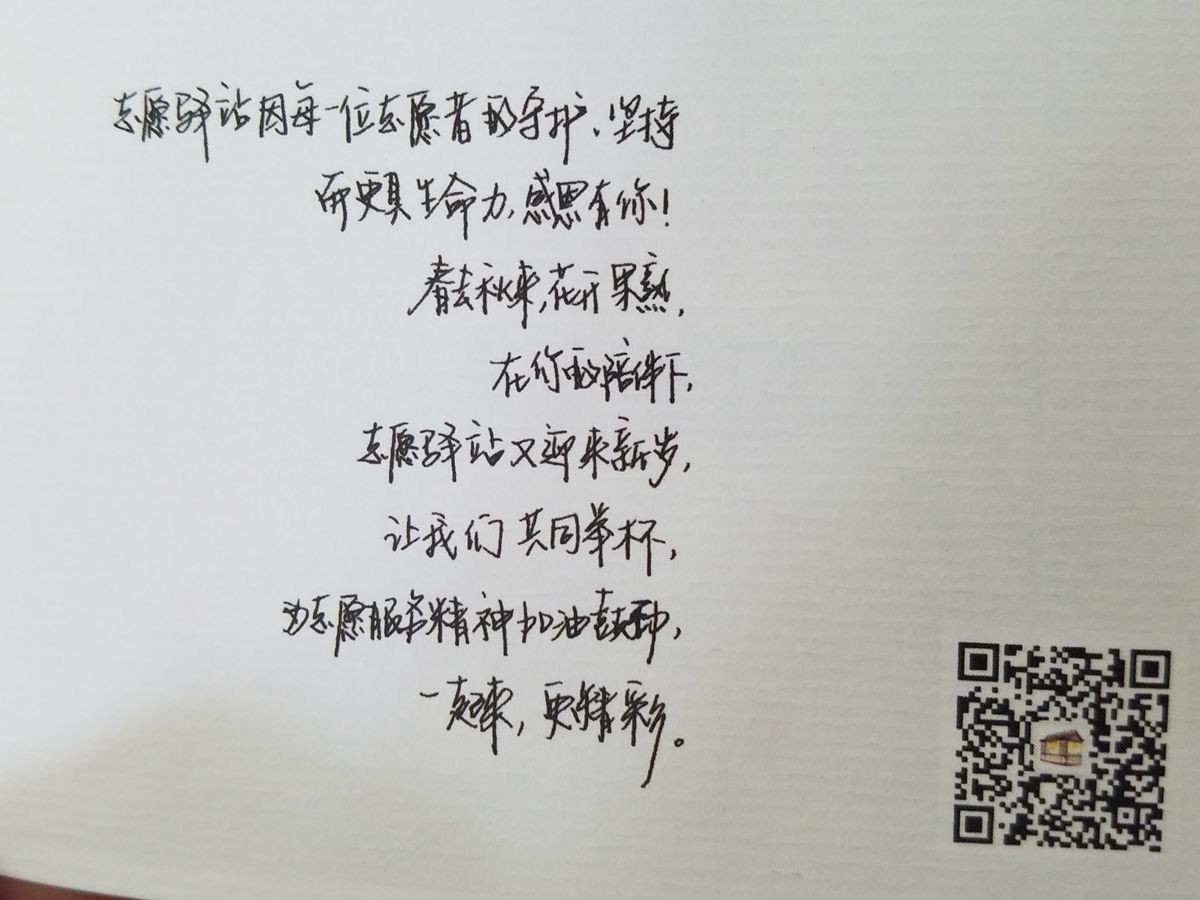 志愿驿站因每一位志愿者的守护、坚持
而更具生命力,感恩有你!
春去秋来,花开果熟,
在你的陪伴下,
志愿驿站又迎来新岁,
让我们共同举杯,
为志愿服务精神加油鼓劲,
一起来,更精彩。